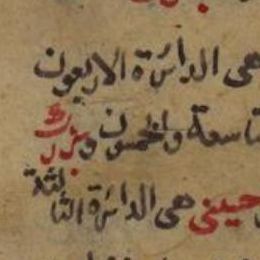 هى الدائرة الاربعون
تاسعة والخمسون وبزرك
حسينى هى الدائرة الثالثة